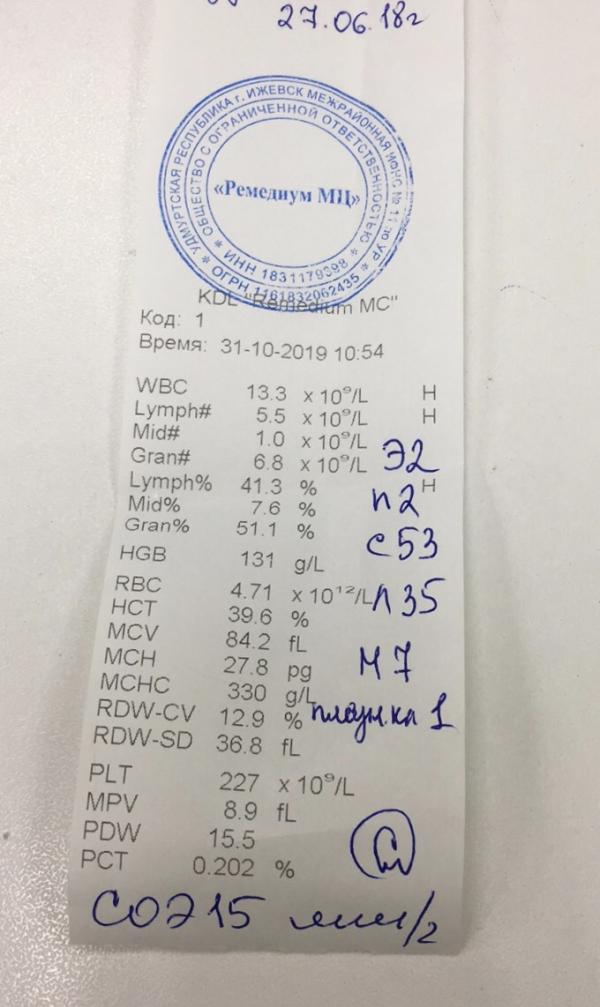 27.06.18г
УДМУРТСКАЯ РЕСПУБЛИКА г. ИЖЕВСК МЕЖРАЙОННАЯ ИФНС № 11 по УР
ОБЩЕСТВО С ОГРАНИЧЕННОЙ ОТВЕТСТВЕННОСТЬЮ
«Ремедиум МЦ»
ИНН 1831179398
ОГРН 1161832062435
KDL "Remedium MC"
Код: 1
Время: 31-10-2019 10:54
WBC 13.3 x 10⁹/L H
Lymph# 5.5 x 10⁹/L H
Mid# 1.0 x 10⁹/L
Gran# 6.8 x 10⁹/L Э2
Lymph% 41.3 % H
Mid% 7.6 % п2
Gran% 51.1 % с53
HGB 131 g/L
RBC 4.71 x 10¹²/L л35
HCT 39.6 %
MCV 84.2 fL
MCH 27.8 pg М7
MCHC 330 g/L
RDW-CV 12.9 % плазм.кл 1
RDW-SD 36.8 fL
PLT 227 x 10⁹/L
MPV 8.9 fL
PDW 15.5
PCT 0.202 %
СОЭ15 мм/г